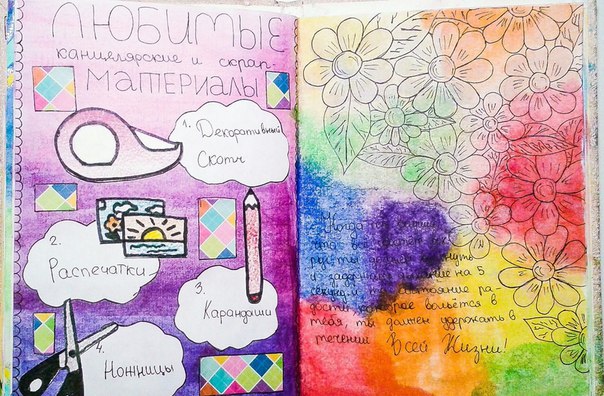 ЛЮБИМЫЕ
канцелярские и скрап-
МАТЕРИАЛЫ
1. Декоративный
Скотч
2.
Распечатки
3.
Карандаши
4.
Ножницы
Когда
что всё
и на 5
секунд и состояние ра-
дости, которое вольётся в
тебя, ты должен удержать в
течении Всей Жизни!